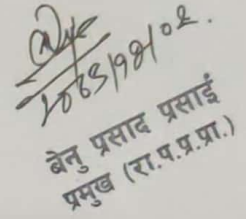 २०७९|१२|०२.
बेनु प्रसाद प्रसाईं
प्रमुख (रा.प.प्र.प्रा.)